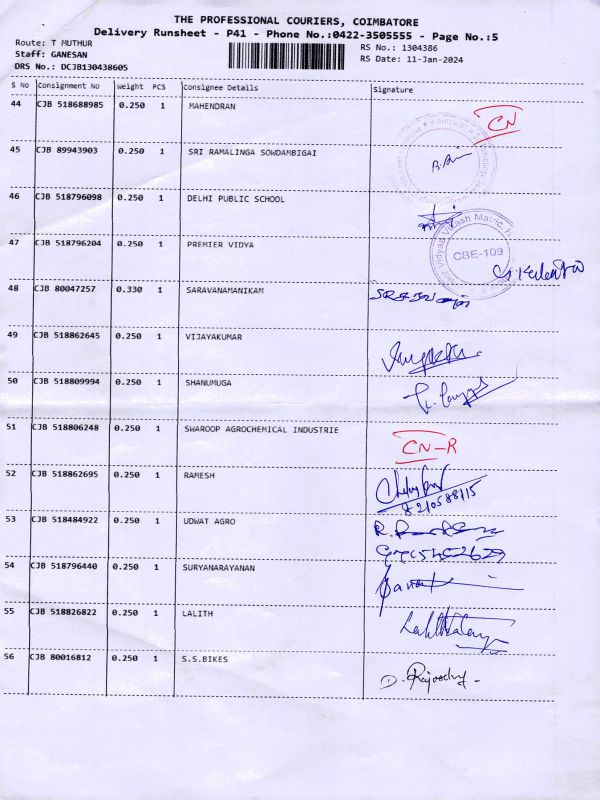 THE PROFESSIONAL COURIERS, COIMBATORE
Delivery Runsheet - P41 - Phone No.:0422-3505555 - Page No.:5
Route: T MUTHUR
RS No.: 1304386
Staff: GANESAN
RS Date: 11-Jan-2024
DRS No.: DCJB130438605
S No Consignment No Weight PCS Consignee Details Signature
44 CJB 518688985 0.250 1 MAHENDRAN CN
45 CJB 89943903 0.250 1 SRI RAMALINGA SOWDAMBIGAI
46 CJB 518796098 0.250 1 DELHI PUBLIC SCHOOL
47 CJB 518796204 0.250 1 PREMIER VIDYA
Vidyaa Vikash Matric.
CBE-109
48 CJB 80047257 0.330 1 SARAVANAMANIKAM
49 CJB 518862645 0.250 1 VIJAYAKUMAR
50 CJB 518809994 0.250 1 SHANUMUGA
51 CJB 518806248 0.250 1 SWAROOP AGROCHEMICAL INDUSTRIE
CN-R
52 CJB 518862695 0.250 1 RAMESH
53 CJB 518484922 0.250 1 UDWAT AGRO
54 CJB 518796440 0.250 1 SURYANARAYANAN
55 CJB 518826822 0.250 1 LALITH
56 CJB 80016812 0.250 1 S.S.BIKES